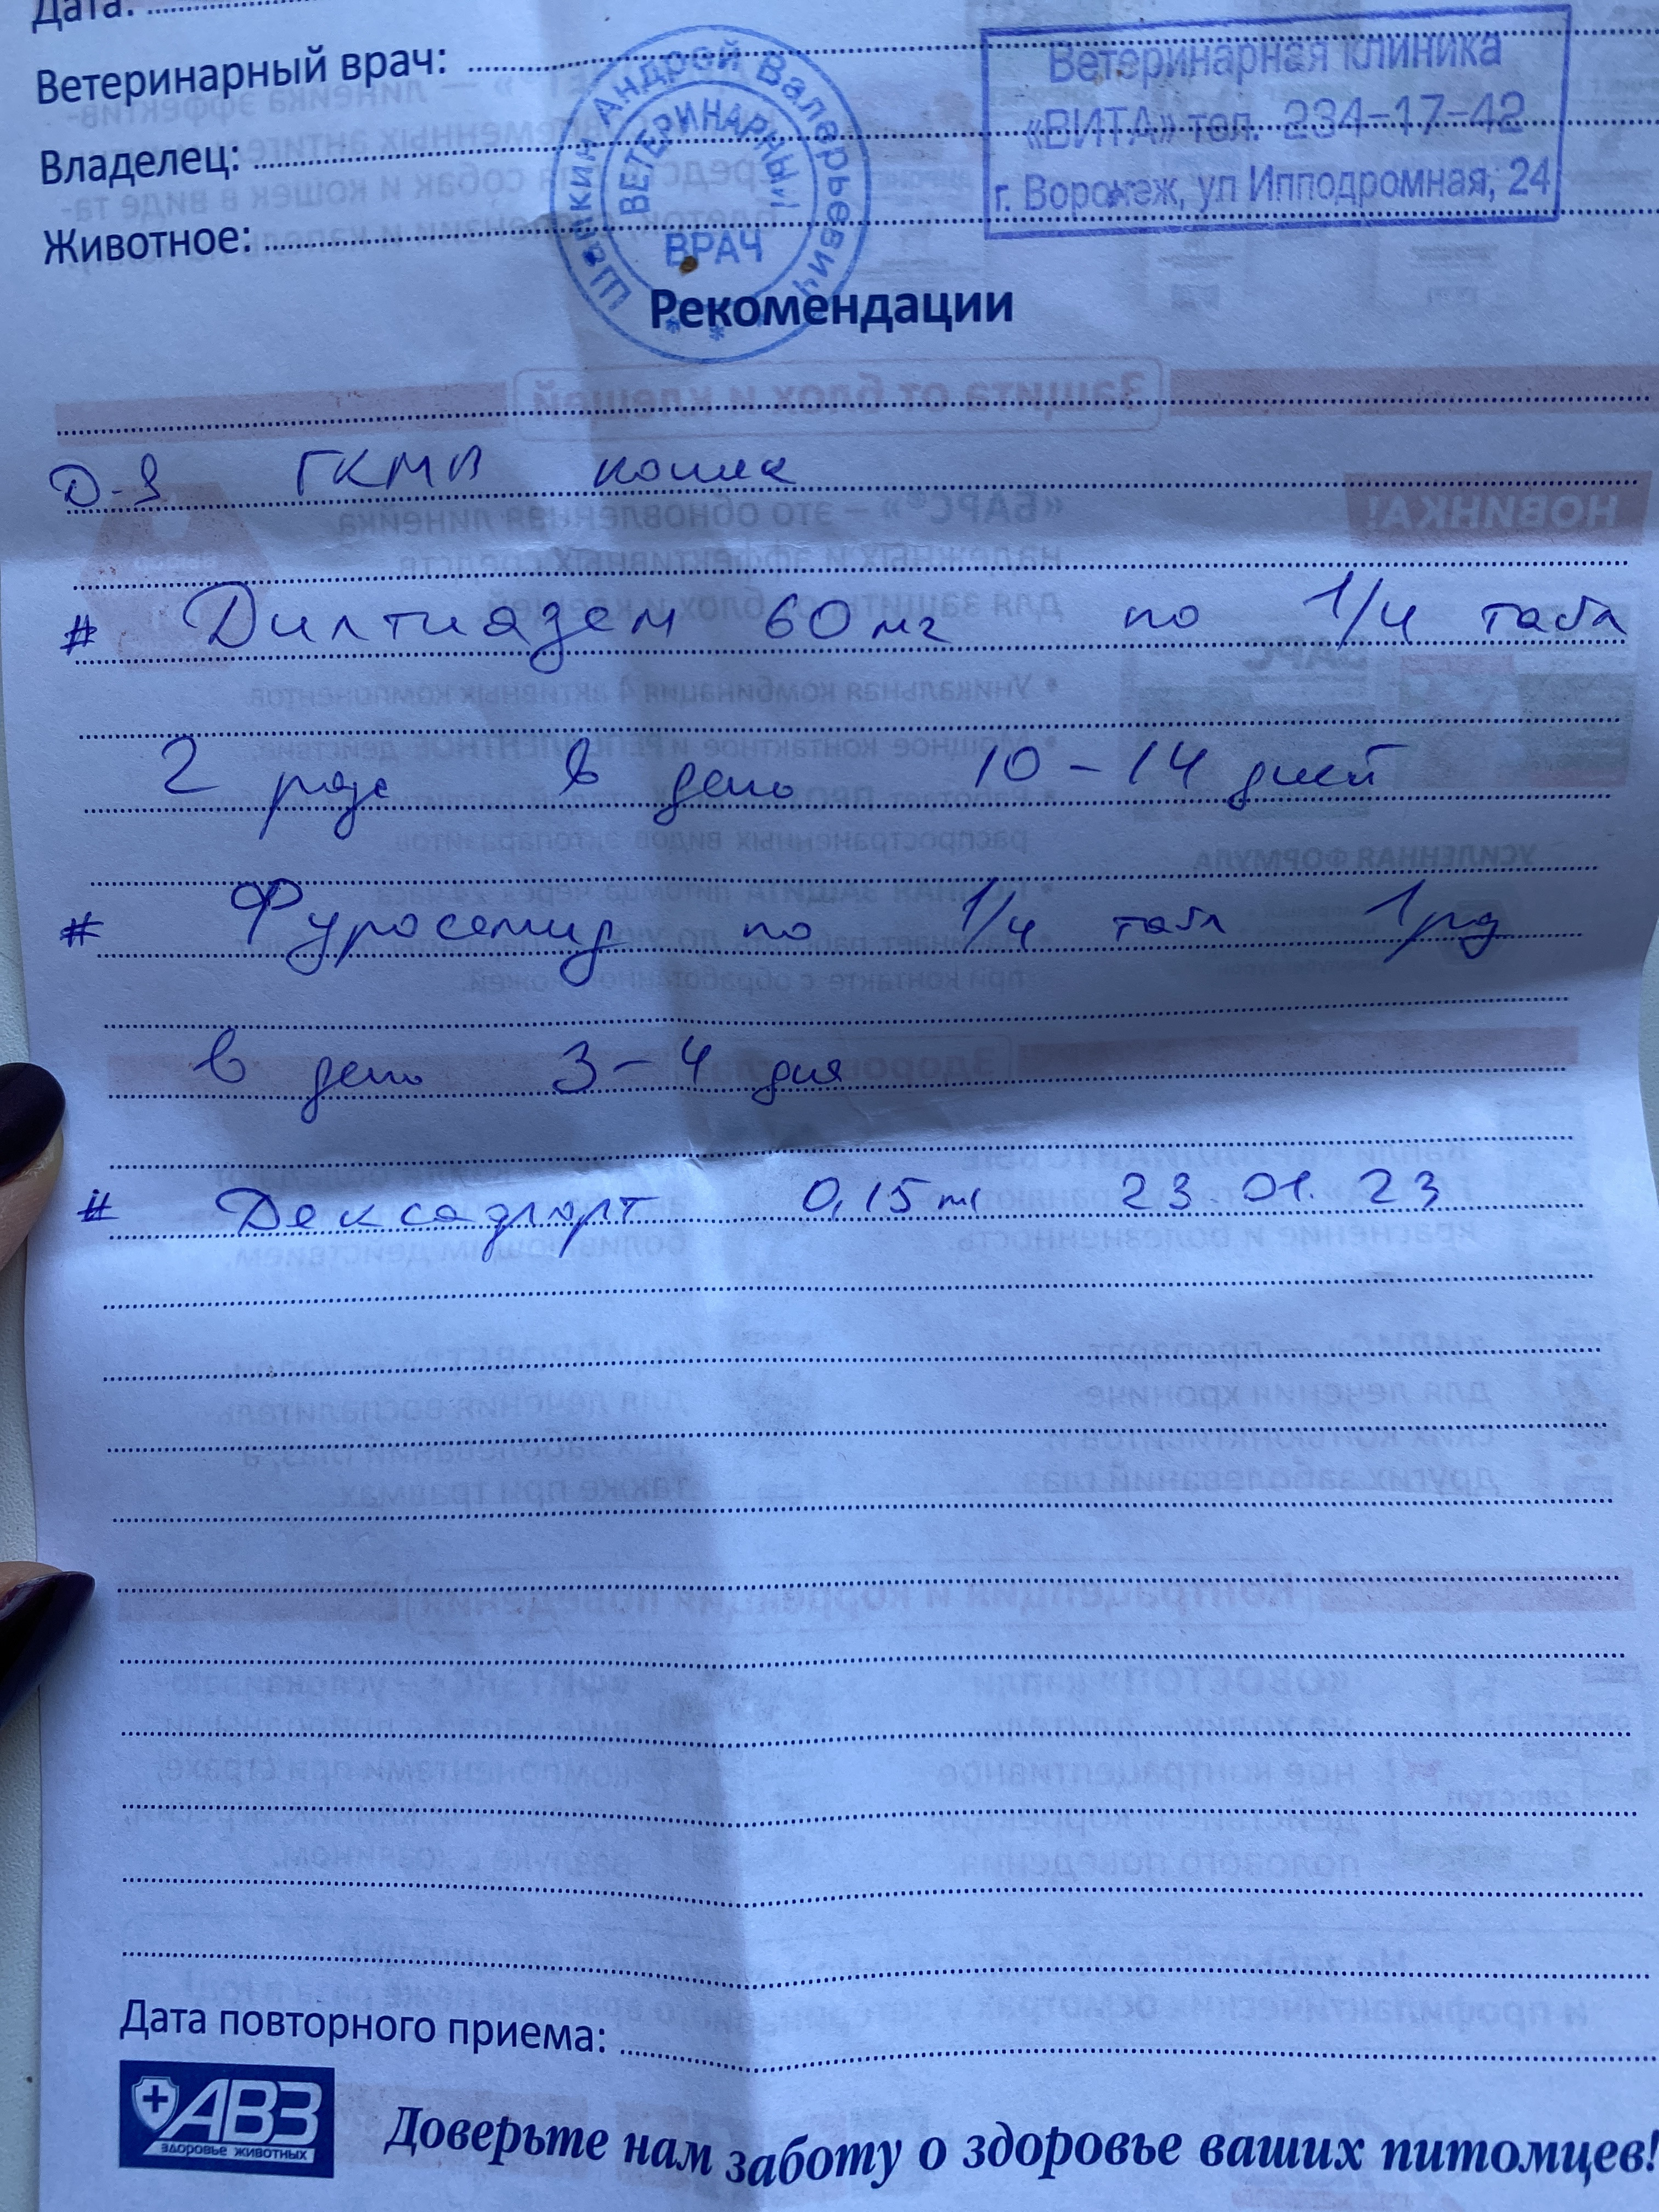 Дата:
Ветеринарный врач:
Владелец:
Животное:
Андрей Валерьевич
ВЕТЕРИНАРНЫЙ
ВРАЧ
Ветеринарная клиника
«ВИТА» тел. 234-17-42
г. Воронеж, ул Ипподромная, 24
Рекомендации
Д-з ГКМП кошка
# Дилтиазем 60 мг по 1/4 табл
2 раза в день 10-14 дней
# Фуросемид по 1/4 табл 1 рд
в день 3-4 дня
# Дексафорт 0,15 ml 23.01.23
Дата повторного приема:
АВЗ
здоровье животных
Доверьте нам заботу о здоровье ваших питомцев!